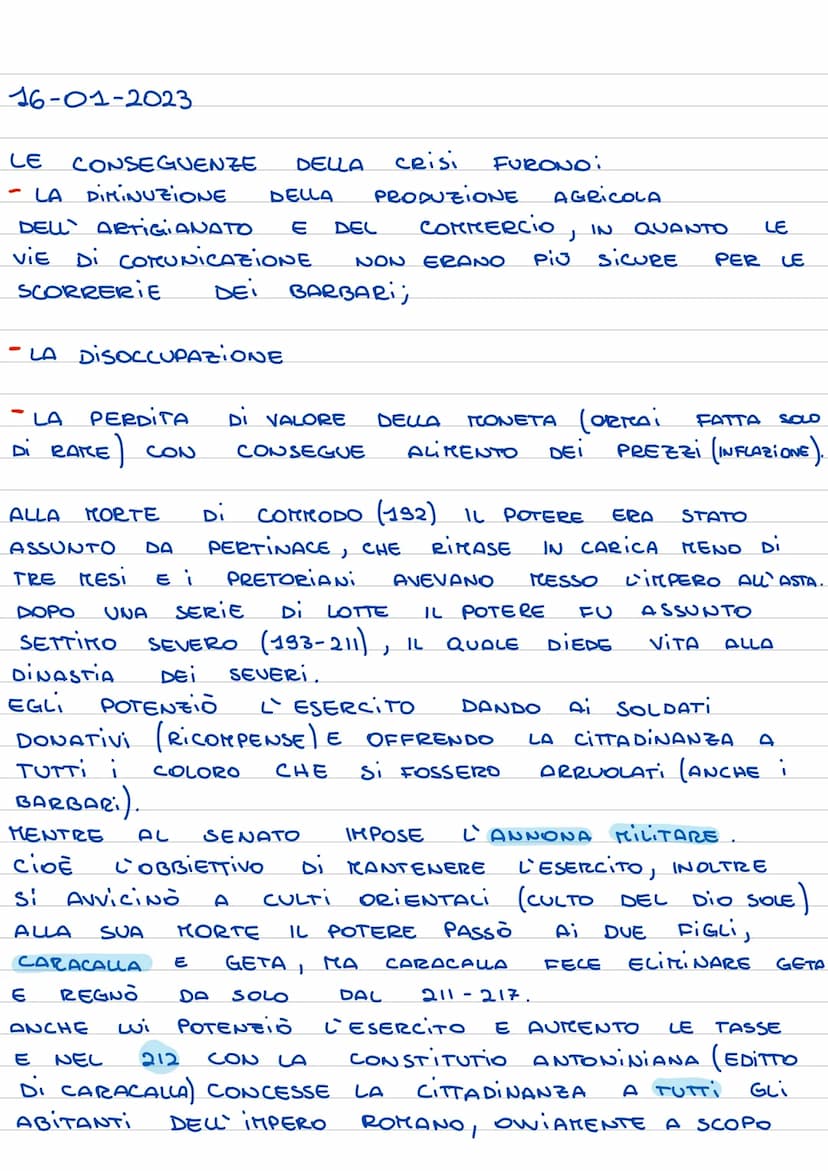 16-01-2023
LE CONSEGUENZE DELLA CRISI FURONO:
- LA DIMINUZIONE DELLA PRODUZIONE AGRICOLA
DELL' ARTIGIANATO E DEL COMMERCIO, IN QUANTO LE
VIE DI COMUNICAZIONE NON ERANO PIÙ SICURE PER LE
SCORRERIE DEI BARBARI;
- LA DISOCCUPAZIONE
- LA PERDITA DI VALORE DELLA MONETA (ORMAI FATTA SOLO
DI RAME) CON CONSEGUE ALIMENTO DEI PREZZI (INFLAZIONE).
ALLA MORTE DI COMMODO (192) IL POTERE ERA STATO
ASSUNTO DA PERTINACE, CHE RIMASE IN CARICA MENO DI
TRE MESI E I PRETORIANI AVEVANO MESSO L'IMPERO ALL'ASTA.
DOPO UNA SERIE DI LOTTE IL POTERE FU ASSUNTO
SETTIMO SEVERO (193-211), IL QUALE DIEDE VITA ALLA
DINASTIA DEI SEVERI.
EGLI POTENZIÒ L'ESERCITO DANDO AI SOLDATI
DONATIVI (RICOMPENSE) E OFFRENDO LA CITTADINANZA A
TUTTI I COLORO CHE SI FOSSERO ARRUOLATI (ANCHE I
BARBARI).
MENTRE AL SENATO IMPOSE L'ANNONA MILITARE.
CIOÈ L'OBBIETTIVO DI MANTENERE L'ESERCITO, INOLTRE
SI AVVICINÒ A CULTI ORIENTALI (CULTO DEL DIO SOLE)
ALLA SUA MORTE IL POTERE PASSÒ AI DUE FIGLI,
CARACALLA E GETA, MA CARACALLA FECE ELIMINARE GETA
E REGNÒ DA SOLO DAL 211-217.
ANCHE LUI POTENZIÒ L'ESERCITO E AUMENTO LE TASSE
E NEL 212 CON LA CONSTITUTIO ANTONINIANA (EDITTO
DI CARACALLA) CONCESSE LA CITTADINANZA A TUTTI GLI
ABITANTI DELL'IMPERO ROMANO, OVVIAMENTE A SCOPO